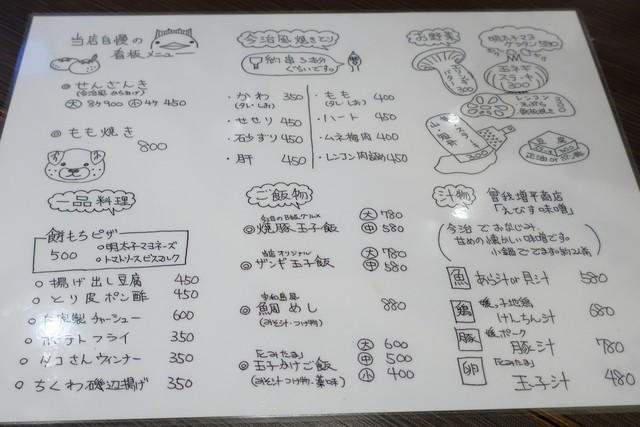 当店自慢の
看板メニュー
◎せんざんき
(今治風から揚げ)
大 8ケ900 小 4ケ 450
◎もも焼き
800
今治風焼きとり
約串3本分
ぐらいです。
・かわ 350
(タレ・しお)
・せせり 450
・石少ずり 450
・肝 450
・もも 400
(タレ・しお)
・ハート 450
・ムネ梅肉 400
・レンコン肉詰め 450
お野菜
明太子マヨ
グラタン
玉ネギ
ステーキ
300
レンコン
300
300
一品料理
餅もちピザ
500
◦明太子マヨネーズ
◦トマトソースビスマルク
○揚げ出し豆腐 450
○とり皮ポン酢 450
○自家製チャーシュー 600
○ポテトフライ 350
○タコさんウィンナー 350
○ちくわ磯辺揚げ 350
ご飯物
今治のB級グルメ
◎焼豚玉子飯
大 780
中 580
当店オリジナル
◎ザンギ玉子飯
大 780
中 580
宇和島風
◎鯛めし 880
(みそ汁・つけ物)
「たこみたま」
◎玉子かけご飯
(みそ汁・つけ物・薬味)
大 600
中 500
小 400
汁物
曽我増平商店
「えびす味噌」
今治でおなじみ
甘めの懐かしい味噌です。
小鍋ででます。約2人前
魚 あら汁or貝汁 580
鶏 媛っ子地鶏
けんちん汁 680
豚 媛ポーク
豚汁 780
卵 「たこみたま」
玉子汁 480